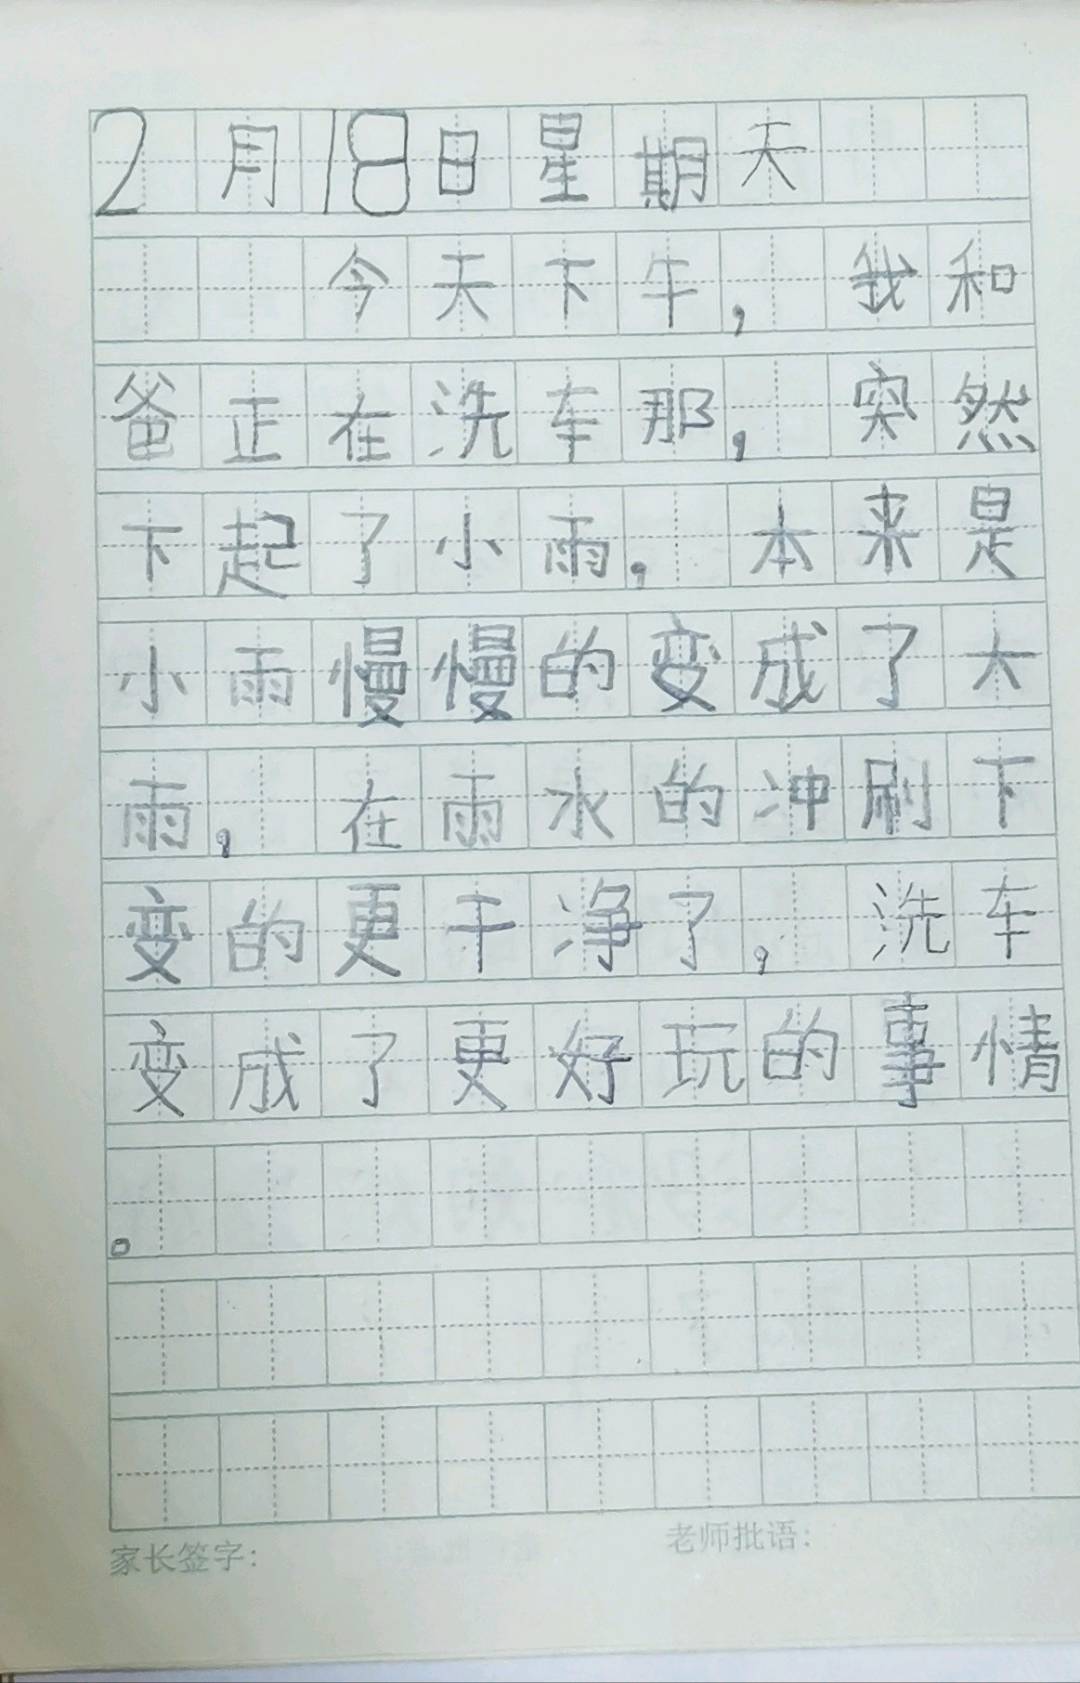 2月18日星期天
今天下午，我和
爸正在洗车那，突然
下起了小雨，本来是
小雨慢慢的变成了大
雨，在雨水的冲刷下
变的更干净了，洗车
变成了更好玩的事情
。
家长签字：
老师批语：